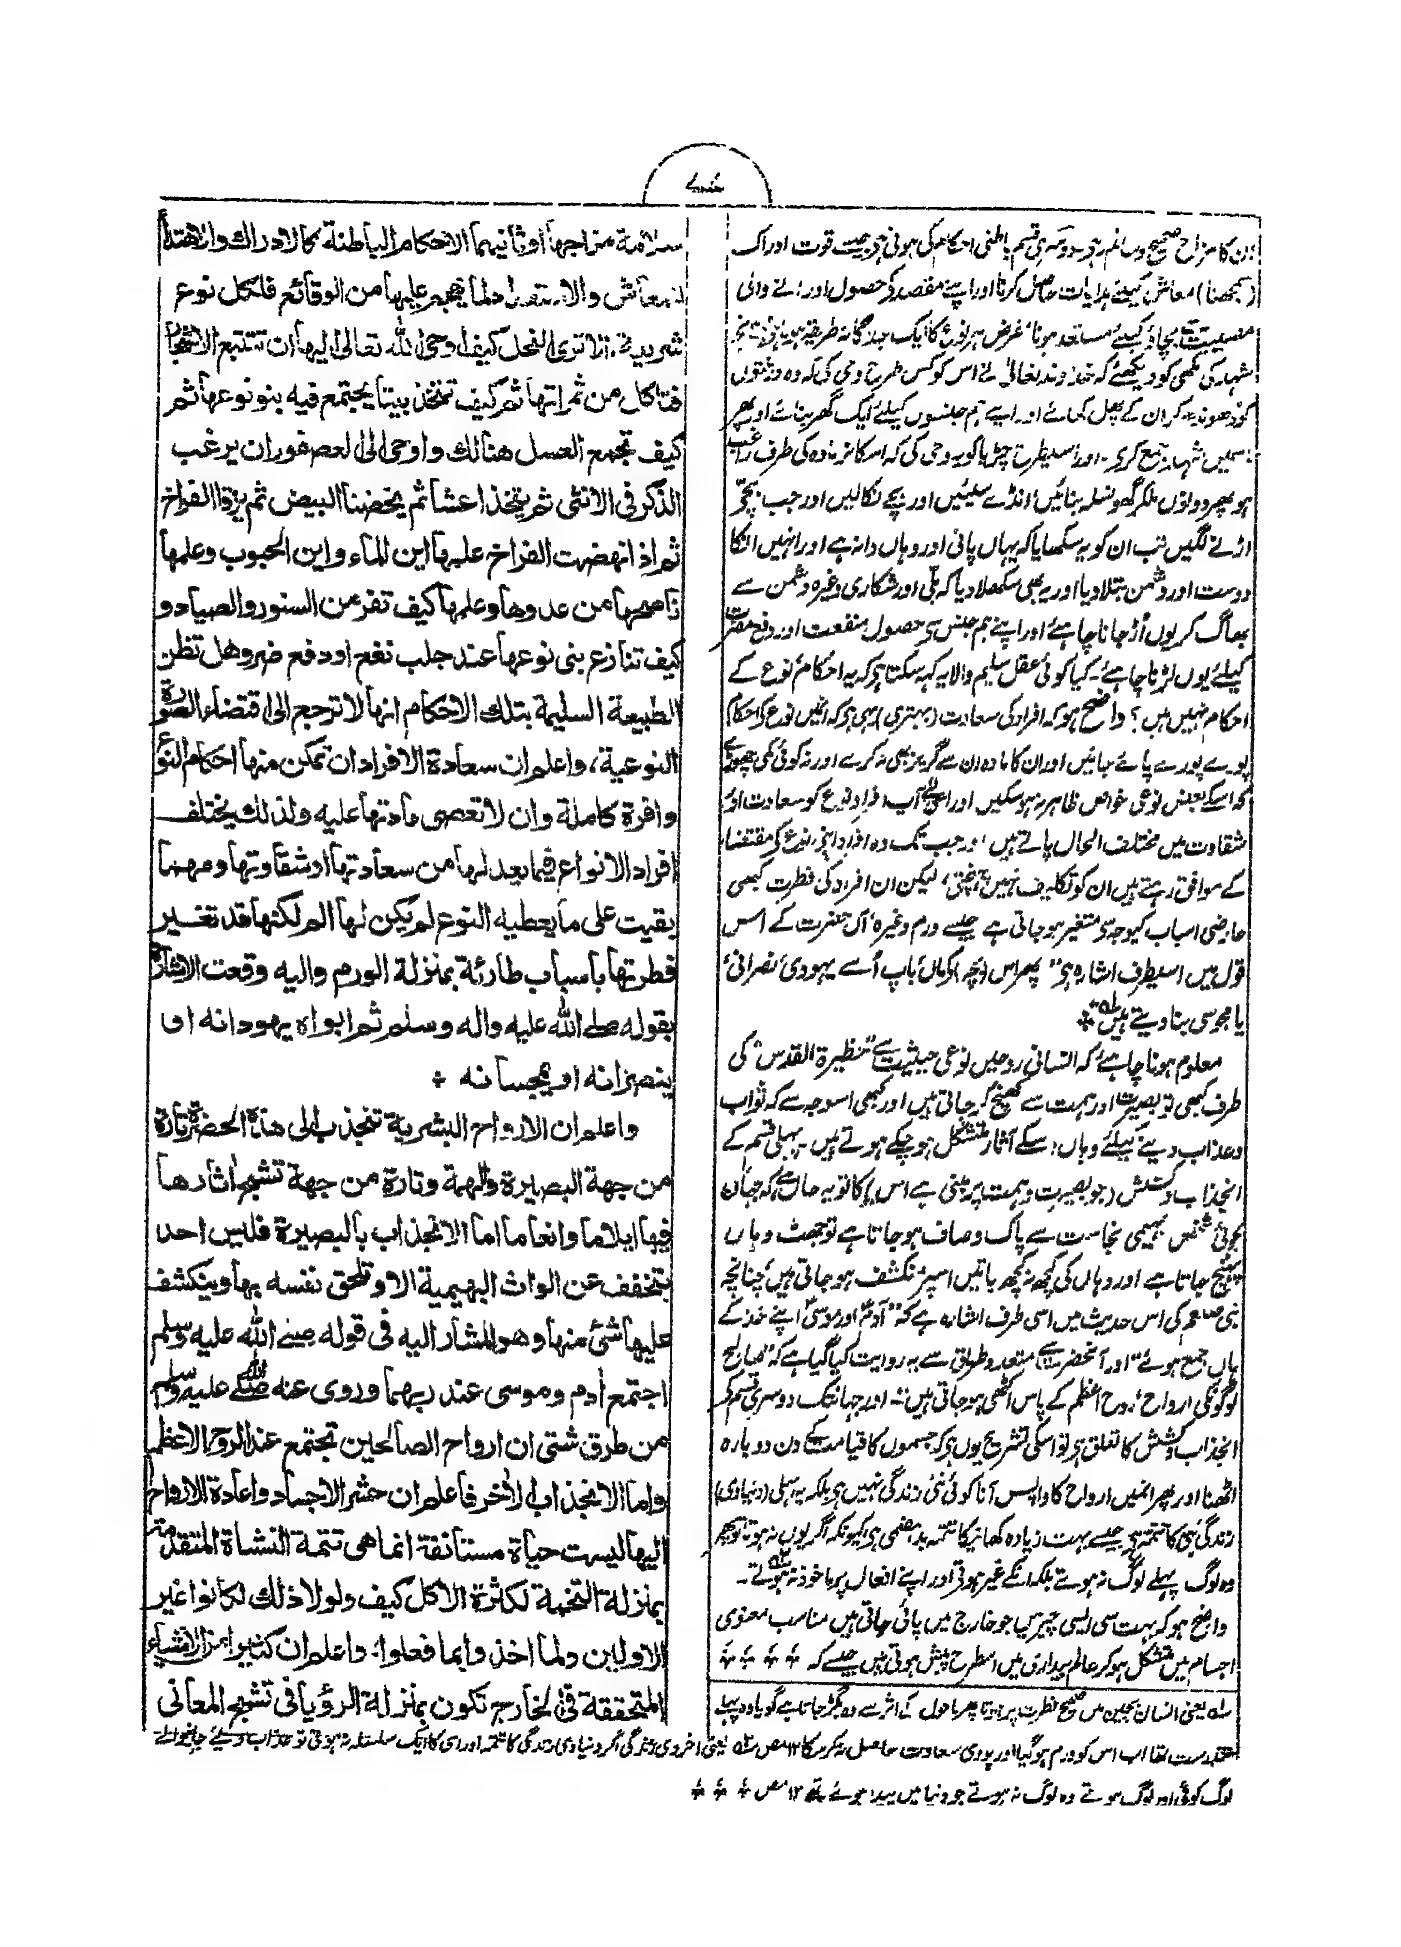 ان کا مزاج صحیح و سالم ہو۔ دوسری قسم باطنی احکام کی ہوتی ہو جیسے قوت ادراک
(سمجھنا) معاش کیلئے ہدایات حاصل کرنا اور اپنے مقصد کے حصول اور آنے والی
مصیبت سے بچاؤ کیلئے مستعد ہونا، غرض ہر نوع کا ایک جداگانہ طریقہ ہوتا ہے
شہد کی مکھی کو دیکھئے کہ خداوند تعالیٰ نے اس کو کس طرح وحی کی کہ وہ درختوں
کو ڈھونڈھ کر ان کے پھل کھائے اور اپنے ہم جنسوں کیلئے ایک گھر بنائے اور پھر
اسمیں شہد جمع کرے۔ اور اسیطرح چڑیا کو یہ وحی کی کہ اسکا نر مادہ کی طرف راغب
ہو پھر دونوں ملکر گھونسلہ بنائیں، انڈے سئیں اور بچے نکالیں اور جب بچے
اڑنے لگیں تب ان کو یہ سکھایا کہ یہاں پانی اور وہاں دانہ ہے اور انہیں انکا
دوست اور دشمن بتلا دیا اور یہ بھی سکھلا دیا کہ بلی اور شکاری وغیرہ دشمن سے
بھاگ کر یوں اُڑ جانا چاہئے اور اپنے ہم جنس سے حصول منفعت اور دفع مضرت
کیلئے یوں لڑنا چاہئے۔ کیا کوئی عقل سلیم والا یہ کہہ سکتا ہو کہ یہ احکام نوع کے
احکام نہیں ہیں؟ واضح ہو کہ افراد کی سعادت (بہتری) یہی ہو کہ انمیں نوع کے احکام
پورے پورے پائے جائیں اور ان کا مادہ ان سے گریز بھی نہ کرے اور نہ کوئی کمی چھوڑے
کہ اسکے بعض نوعی خواص ظاہر نہ ہو سکیں اور اسی لئے آپ افراد نوع کو سعادت اور
شقاوت میں مختلف الحال پاتے ہیں، اور جب تک وہ افراد اپنی نوع کے مقتضاء
کے موافق رہتے ہیں ان کو تکلیف نہیں پہنچتی، لیکن ان افراد کی فطرت کبھی
عارضی اسباب کیوجہ سے متغیر ہو جاتی ہے جیسے ورم وغیرہ، آں حضرت کے اس
قول میں اسیطرف اشارہ ہو "پھر اس (بچہ) کے ماں باپ اُسے یہودی، نصرانی،
یا مجوسی بنا دیتے ہیں"
معلوم ہونا چاہئے کہ انسانی روحیں نوعی حیثیت سے "حظیرۃ القدس" کی
طرف کبھی تو بصیرت اور ہمت سے کھنچ کر جاتی ہیں اور کبھی اسوجہ سے کہ ثواب
و عذاب دینے کیلئے وہاں اسکے آثار متشکل ہو چکے ہوتے ہیں۔ پہلی قسم کے
انجذاب و کشش (جو بصیرت و ہمت پر مبنی ہے اس) کا تو یہ حال ہے کہ جہاں
کوئی شخص بہیمی نجاست سے پاک و صاف ہو جاتا ہے تو جھٹ وہاں
پہنچ جاتا ہے اور وہاں کی کچھ نہ کچھ باتیں اسپر منکشف ہو جاتی ہیں، چنانچہ
نبی صلعم کی اس حدیث میں اسی طرف اشارہ ہے کہ "آدمؑ اور موسیٰؑ اپنے خدا کے
ہاں جمع ہوئے" اور آنحضرت سے متعدد طرق سے یہ روایت کیا گیا ہے کہ "صالح
لوگونکی ارواح، روح اعظم کے پاس اکٹھی ہو جاتی ہیں"۔ اور جہانتک دوسری قسم کے
انجذاب و کشش کا تعلق ہو تو اسکی تشریح یوں ہو کہ جسموں کا قیامت کے دن دوبارہ
اٹھنا اور پھر انمیں ارواح کا واپس آنا کوئی نئی زندگی نہیں ہو بلکہ یہ پہلی (دنیاوی)
زندگی ہی کا تتمہ ہو جیسے بہت زیادہ کھانیکا تتمہ بدہضمی ہو کیونکہ اگر یوں نہ ہوتا تو پھر
وہ لوگ پہلے لوگ نہ ہوتے بلکہ انکے غیر ہوتے اور اپنے افعال پر ماخوذ نہ ہوتے۔
واضح ہو کہ بہت سی ایسی چیزیں جو خارج میں پائی جاتی ہیں مناسب معنوی
اجسام میں متشکل ہو کر عالم بیداری میں اسطرح پیش ہوتی ہیں جیسے کہ
سلامة مزاجها وثانيهما الاحكام الباطنة كالادراك والاهتداء
للمعاش والاستعداد لما يهجم عليها من الوقائع فلكل نوع
شريعة، الا ترى النحل كيف اوحى الله تعالى اليها ان تتتبع الاشجار
فتاكل من ثمراتها ثم كيف تتخذ بيتا يجتمع فيه بنو نوعها ثم
كيف تجمع العسل هنالك واوحى الى العصفور ان يرغب
الذكر فى الانثى ثم يتخذا عشا ثم يحضنا البيض ثم يزقا الفراخ
ثم اذا نهضت الفراخ علمها اين الماء واين الحبوب وعلمها
ناصحها من عدوها وعلمها كيف تفر من السنور والصياد و
كيف تنازع بنى نوعها عند جلب نفع او دفع ضر وهل تظن
الطبيعة السليمة بتلك الاحكام انها لا ترجع الى اقتضاء الصورة
النوعية، واعلم ان سعادة الافراد ان تمكن منها احكام النوع
وافرة كاملة وان لا تعصى مادتها عليه ولذلك يختلف
افراد الانواع فيما يعد لها من سعادتها او شقاوتها ومهما
بقيت على ما يعطيه النوع لم يكن لها الم لكنها قد تغير
فطرتها باسباب طارئة بمنزلة الورم واليه وقعت الاشارة
بقوله صلى الله عليه واله وسلم ثم ابواه يهودانه او
ينصرانه او يمجسانه
واعلم ان الارواح البشرية تنجذب الى هذه الحضرة تارة
من جهة البصيرة والهمة وتارة من جهة تشبح اثارها
فيها ايلاما وانعاما اما الانجذاب بالبصيرة فليس احد
يتخفف عن الواث البهيمية الا وتلحق نفسه بها وينكشف
عليها شئ منها وهو المشار اليه فى قوله صلى الله عليه وسلم
اجتمع ادم وموسى عند ربهما وروى عنه صلى الله عليه وسلم
من طرق شتى ان ارواح الصالحين تجتمع عند الروح الاعظم
واما الانجذاب الاخر فاعلم ان حشر الاجساد واعادة الارواح
اليها ليست حياة مستانفة انما هى تتمة النشاة المتقدمة
بمنزلة التخمة لكثرة الاكل كيف ولولا ذلك لكانوا غير
الاولين ولما اخذوا بما فعلوا، واعلم ان كثيرا من الاشياء
المتحققة فى الخارج تكون بمنزلة الرؤيا فى تشبح المعانى
سلہ یعنی انسان بچپن میں صحیح فطرت پر ہوتا پھر ماحول کے اثر سے وہ بگڑ جاتا ہے گویا وہ پہلے
تندرست تھا اب اس کو ورم ہو گیا اور پوری سعادت حاصل نہ کر سکا ۱۲ مص سلہ یعنی اخروی زندگی اگر دنیاوی زندگی کا تتمہ اور اسی کا ایک سلسلہ نہ ہوتی تو عذاب دیئے جانیوالے
لوگ کوئی اور لوگ ہوتے وہ لوگ نہ ہوتے جو دنیا میں پیدا ہوئے تھے ۱۲ مص